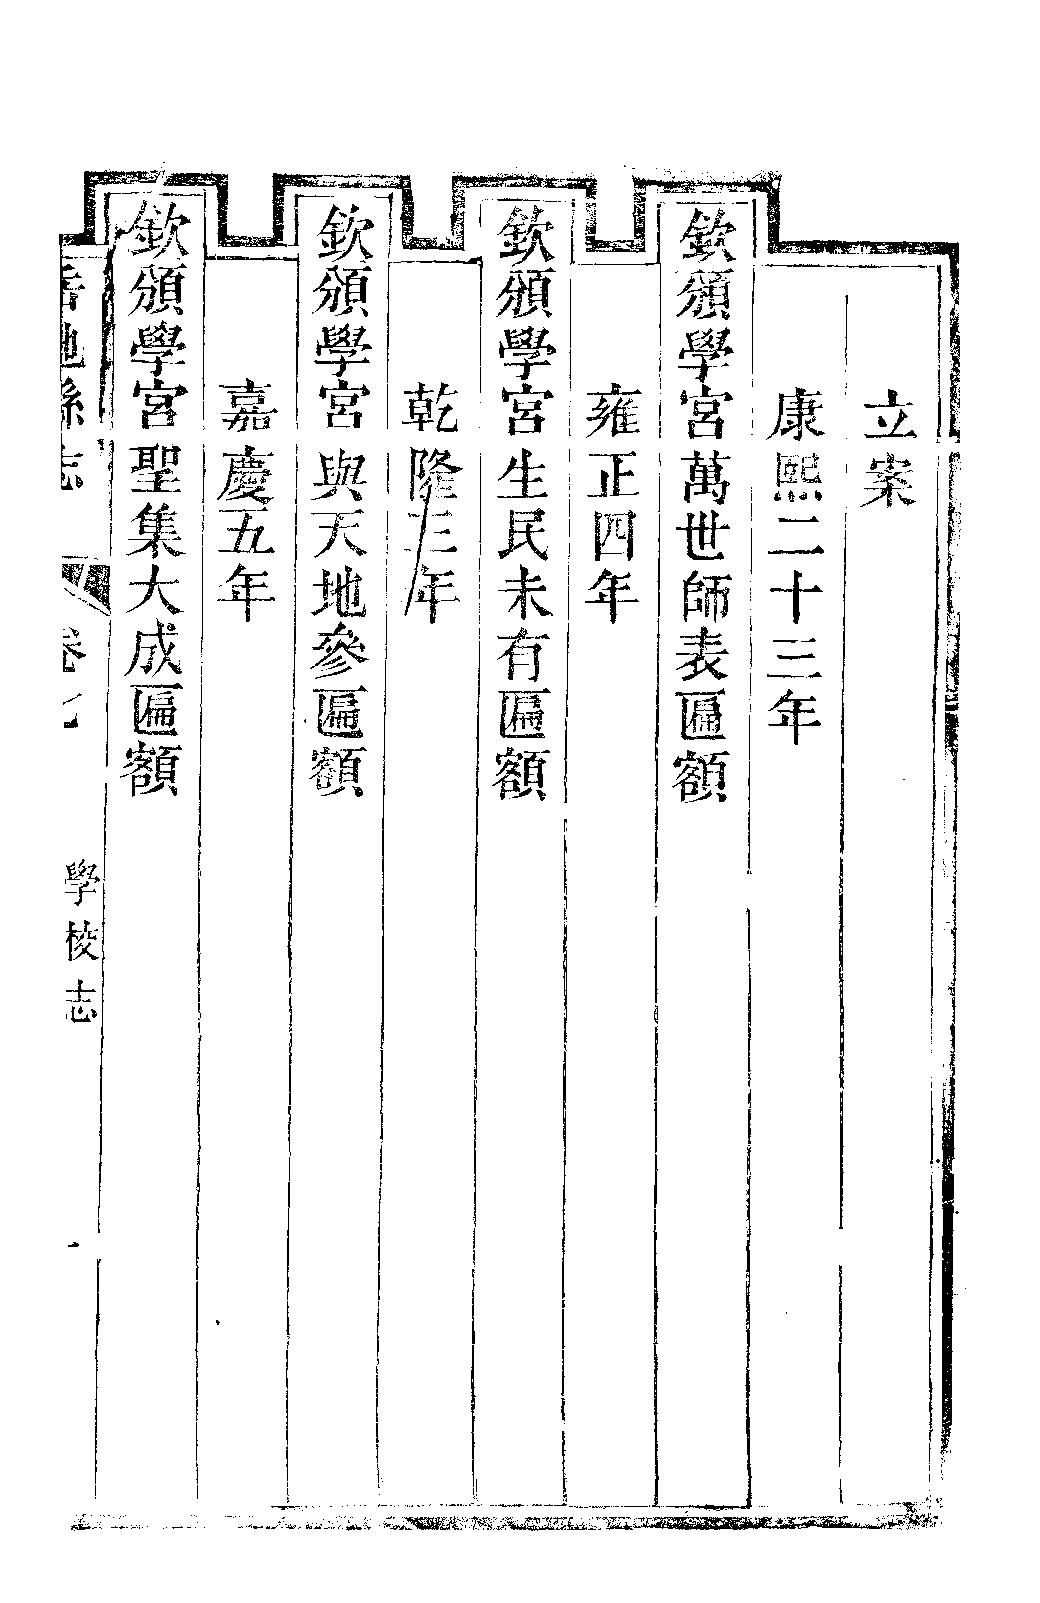 立案
康熙二十三年
欽頒學宮萬世師表匾額
雍正四年
欽頒學宮生民未有匾額
乾隆三年
欽頒學宮與天地參匾額
嘉慶五年
欽頒學宮聖集大成匾額
地縣志 卷 學校志